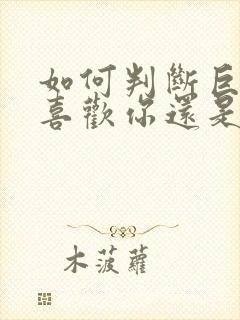 如何判斷巨
喜歡你還是
木菠蘿